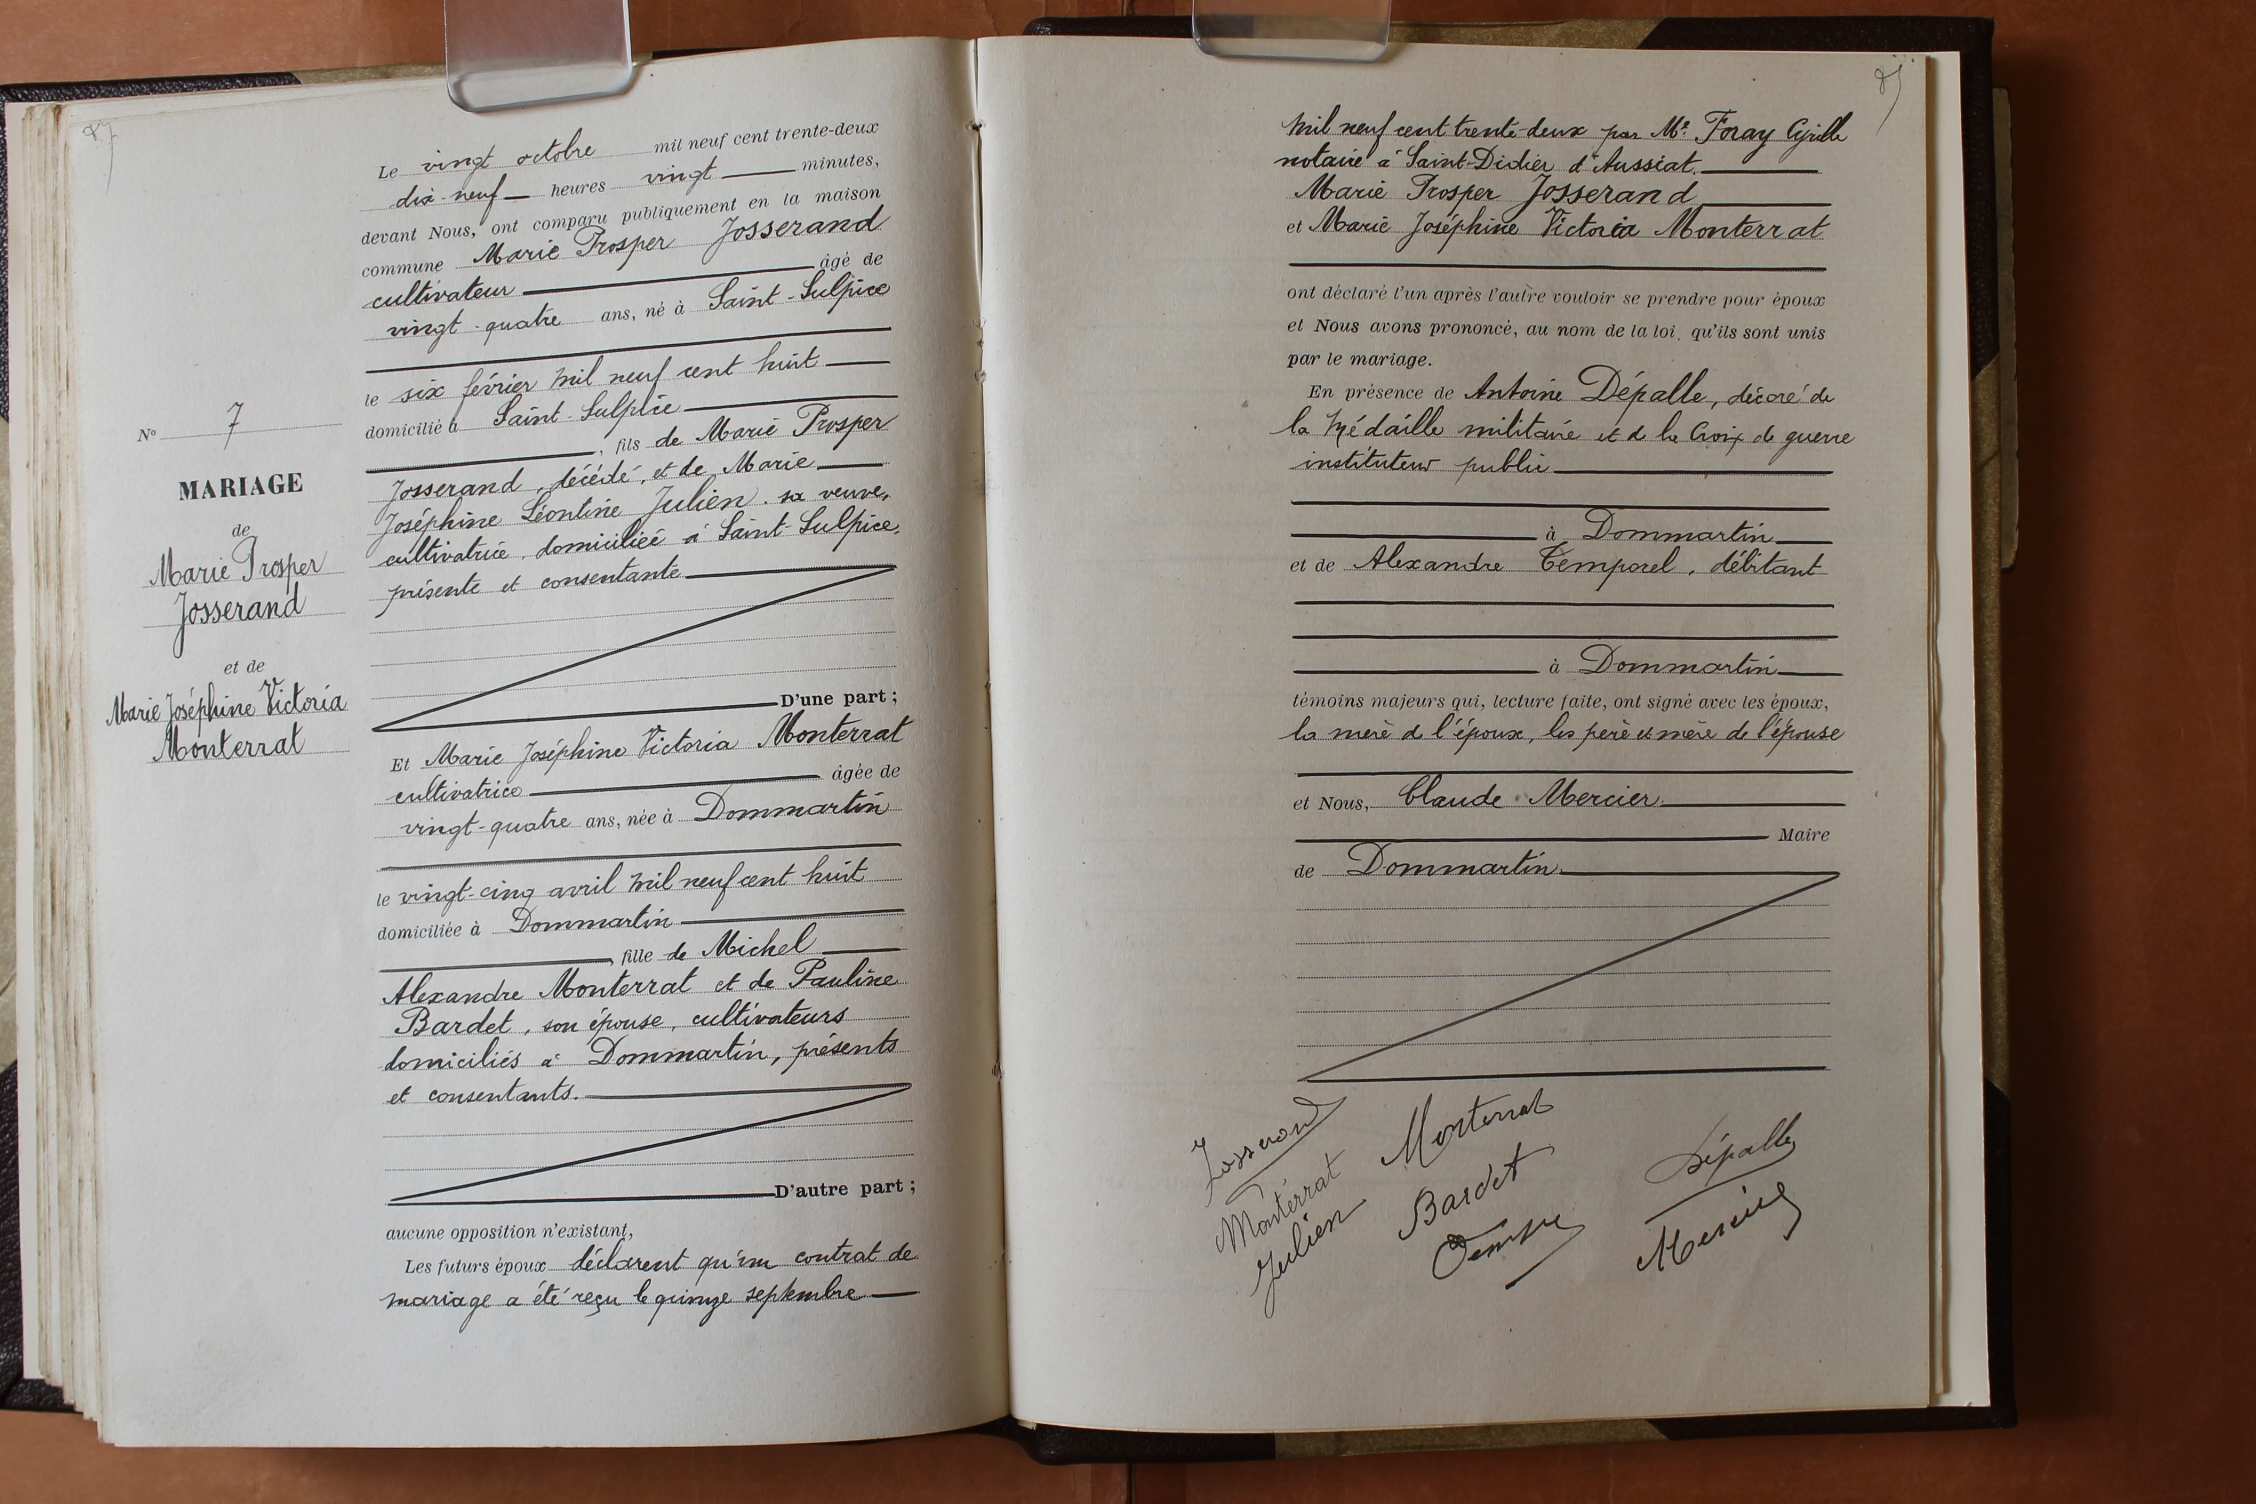 N° 7
MARIAGE
de
Marie Prosper
Josserand
et de
Marie Joséphine Victoria
Monterrat
Le vingt octobre mil neuf cent trente-deux
dix-neuf heures vingt minutes,
devant Nous, ont comparu publiquement en la maison
commune Marie Prosper Josserand
cultivateur âgé de
vingt-quatre ans, né à Saint-Sulpice
le six février mil neuf cent huit
domicilié à Saint-Sulpice
, fils de Marie Prosper
Josserand, décédé, et de Marie
Joséphine Léontine Julien, sa veuve,
cultivatrice, domiciliée à Saint-Sulpice,
présente et consentante
D'une part ;
Et Marie Joséphine Victoria Monterrat
cultivatrice âgée de
vingt-quatre ans, née à Dommartin
le vingt-cinq avril mil neuf cent huit
domiciliée à Dommartin
, fille de Michel
Alexandre Monterrat et de Pauline
Bardet, son épouse, cultivateurs
domiciliés à Dommartin, présents
et consentants.
D'autre part ;
aucune opposition n'existant,
Les futurs époux déclarent qu'un contrat de
mariage a été reçu le quinze septembre
mil neuf cent trente-deux par Me Foray Cyrille
notaire à Saint-Didier d'Aussiat.
Marie Prosper Josserand
et Marie Joséphine Victoria Monterrat
ont déclaré l'un après l'autre vouloir se prendre pour époux
et Nous avons prononcé, au nom de la loi, qu'ils sont unis
par le mariage.
En présence de Antoine Dépalle, décoré de
la Médaille militaire et de la Croix de guerre
instituteur public
à Dommartin
et de Alexandre Temporel, débitant
à Dommartin
témoins majeurs qui, lecture faite, ont signé avec les époux,
la mère de l'époux, les père et mère de l'épouse
et Nous, Claude Mercier
Maire
de Dommartin
Josserand
Monterrat
Dépalle
Monterrat
Bardet
Julien
Mercier